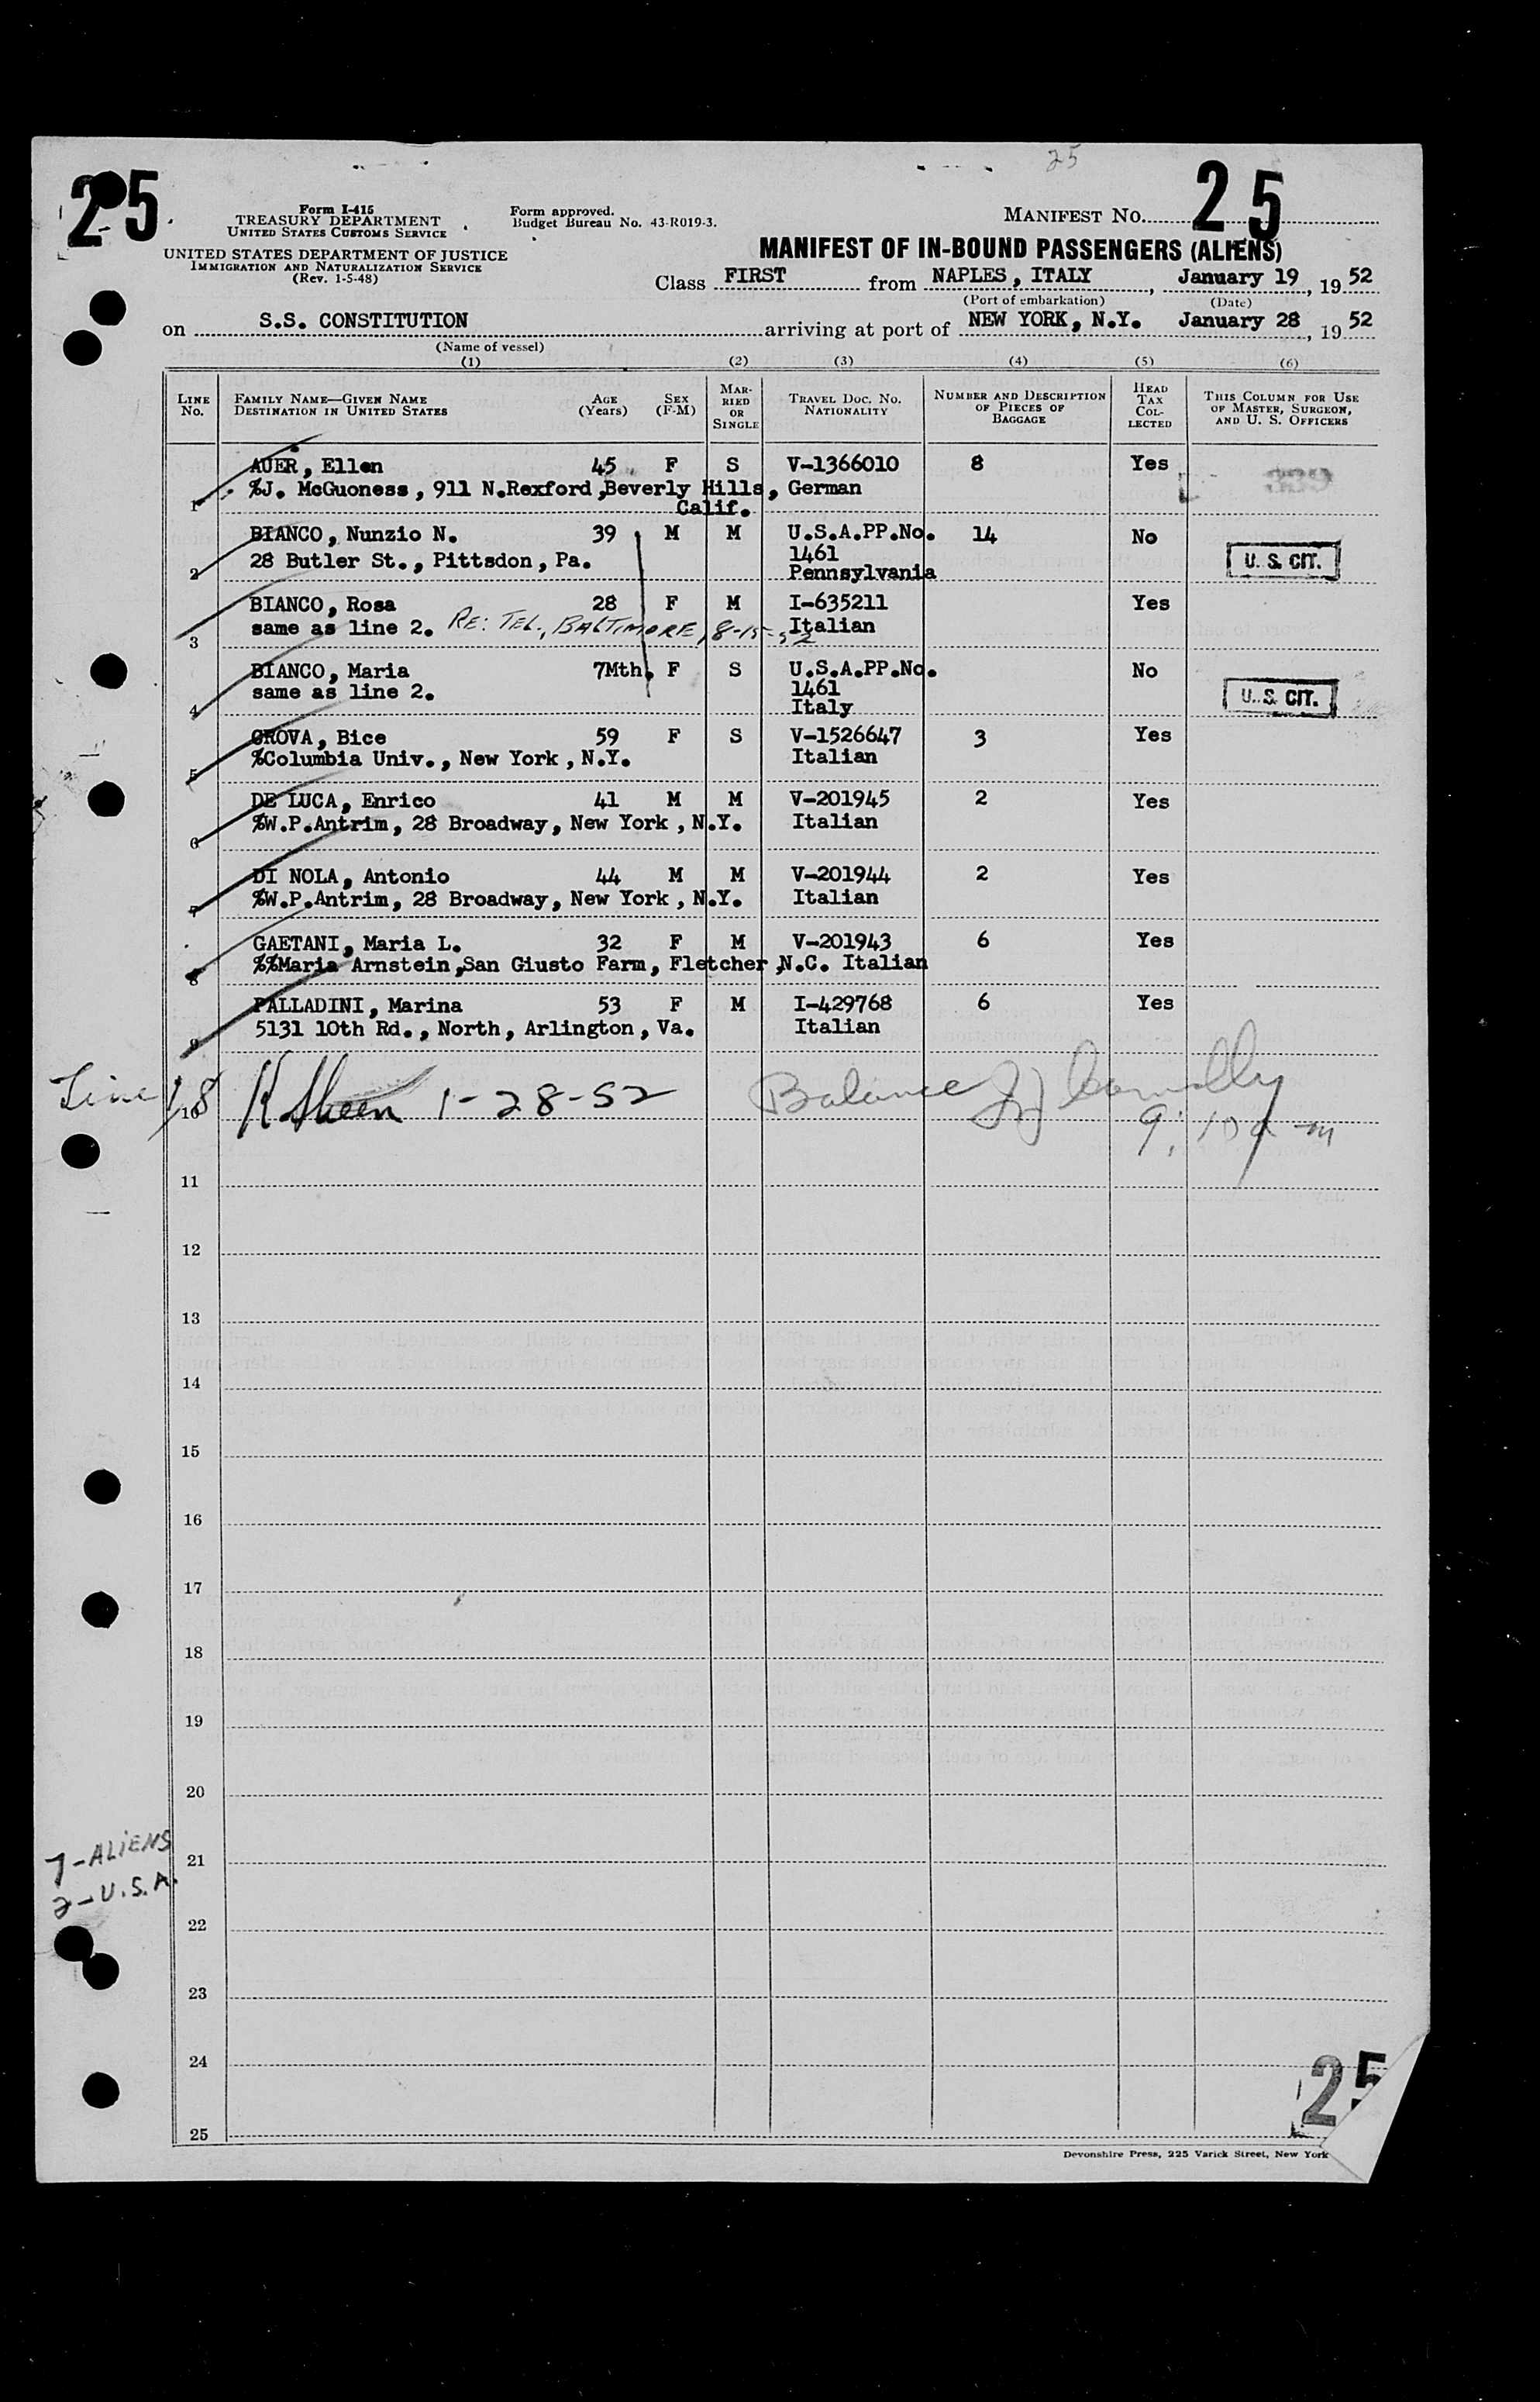 25
25
25
Form I-415
TREASURY DEPARTMENT
UNITED STATES CUSTOMS SERVICE
Form approved.
Budget Bureau No. 43-R019-3.
MANIFEST NO.
UNITED STATES DEPARTMENT OF JUSTICE
IMMIGRATION AND NATURALIZATION SERVICE
(Rev. 1-5-48)
MANIFEST OF IN-BOUND PASSENGERS (ALIENS)
Class FIRST from NAPLES, ITALY, January 19, 1952
(Port of embarkation) (Date)
on S.S. CONSTITUTION arriving at port of NEW YORK, N.Y. January 28, 1952
(Name of vessel)
(1) (2) (3) (4) (5) (6)
LINE No. FAMILY NAME—GIVEN NAME DESTINATION IN UNITED STATES AGE (Years) SEX (F-M) MARRIED OR SINGLE TRAVEL DOC. NO. NATIONALITY NUMBER AND DESCRIPTION OF PIECES OF BAGGAGE HEAD TAX COLLECTED THIS COLUMN FOR USE OF MASTER, SURGEON, AND U. S. OFFICERS
AUER, Ellen 45 F S V-1366010 8 Yes
1 %J. McGuoness, 911 N.Rexford,Beverly Hills, German
Calif.
BIANCO, Nunzio N. 39 M M U.S.A.PP.No. 14 No
28 Butler St., Pittsdon, Pa. 1461 U. S. CIT.
2 Pennsylvania
BIANCO, Rosa 28 F M I-635211 Yes
same as line 2. RE: TEL., BALTIMORE, 8-15-52 Italian
3
BIANCO, Maria 7Mth. F S U.S.A.PP.No. No
same as line 2. 1461 U. S. CIT.
4 Italy
CROVA, Bice 59 F S V-1526647 3 Yes
5 %Columbia Univ., New York, N.Y. Italian
DE LUCA, Enrico 41 M M V-201945 2 Yes
6 %W.P.Antrim, 28 Broadway, New York, N.Y. Italian
DI NOLA, Antonio 44 M M V-201944 2 Yes
7 %W.P.Antrim, 28 Broadway, New York, N.Y. Italian
GAETANI, Maria L. 32 F M V-201943 6 Yes
8 %%Maria Arnstein,San Giusto Farm, Fletcher,N.C. Italian
PALLADINI, Marina 53 F M I-429768 6 Yes
9 5131 10th Rd., North, Arlington, Va. Italian
Line 1,8 1-28-52 Balance
10 9:10 a m
11
12
13
14
15
16
17
18
19
20
7-ALIENS
21
2-U.S.A.
22
23
24
25
25
Devonshire Press, 225 Varick Street, New York